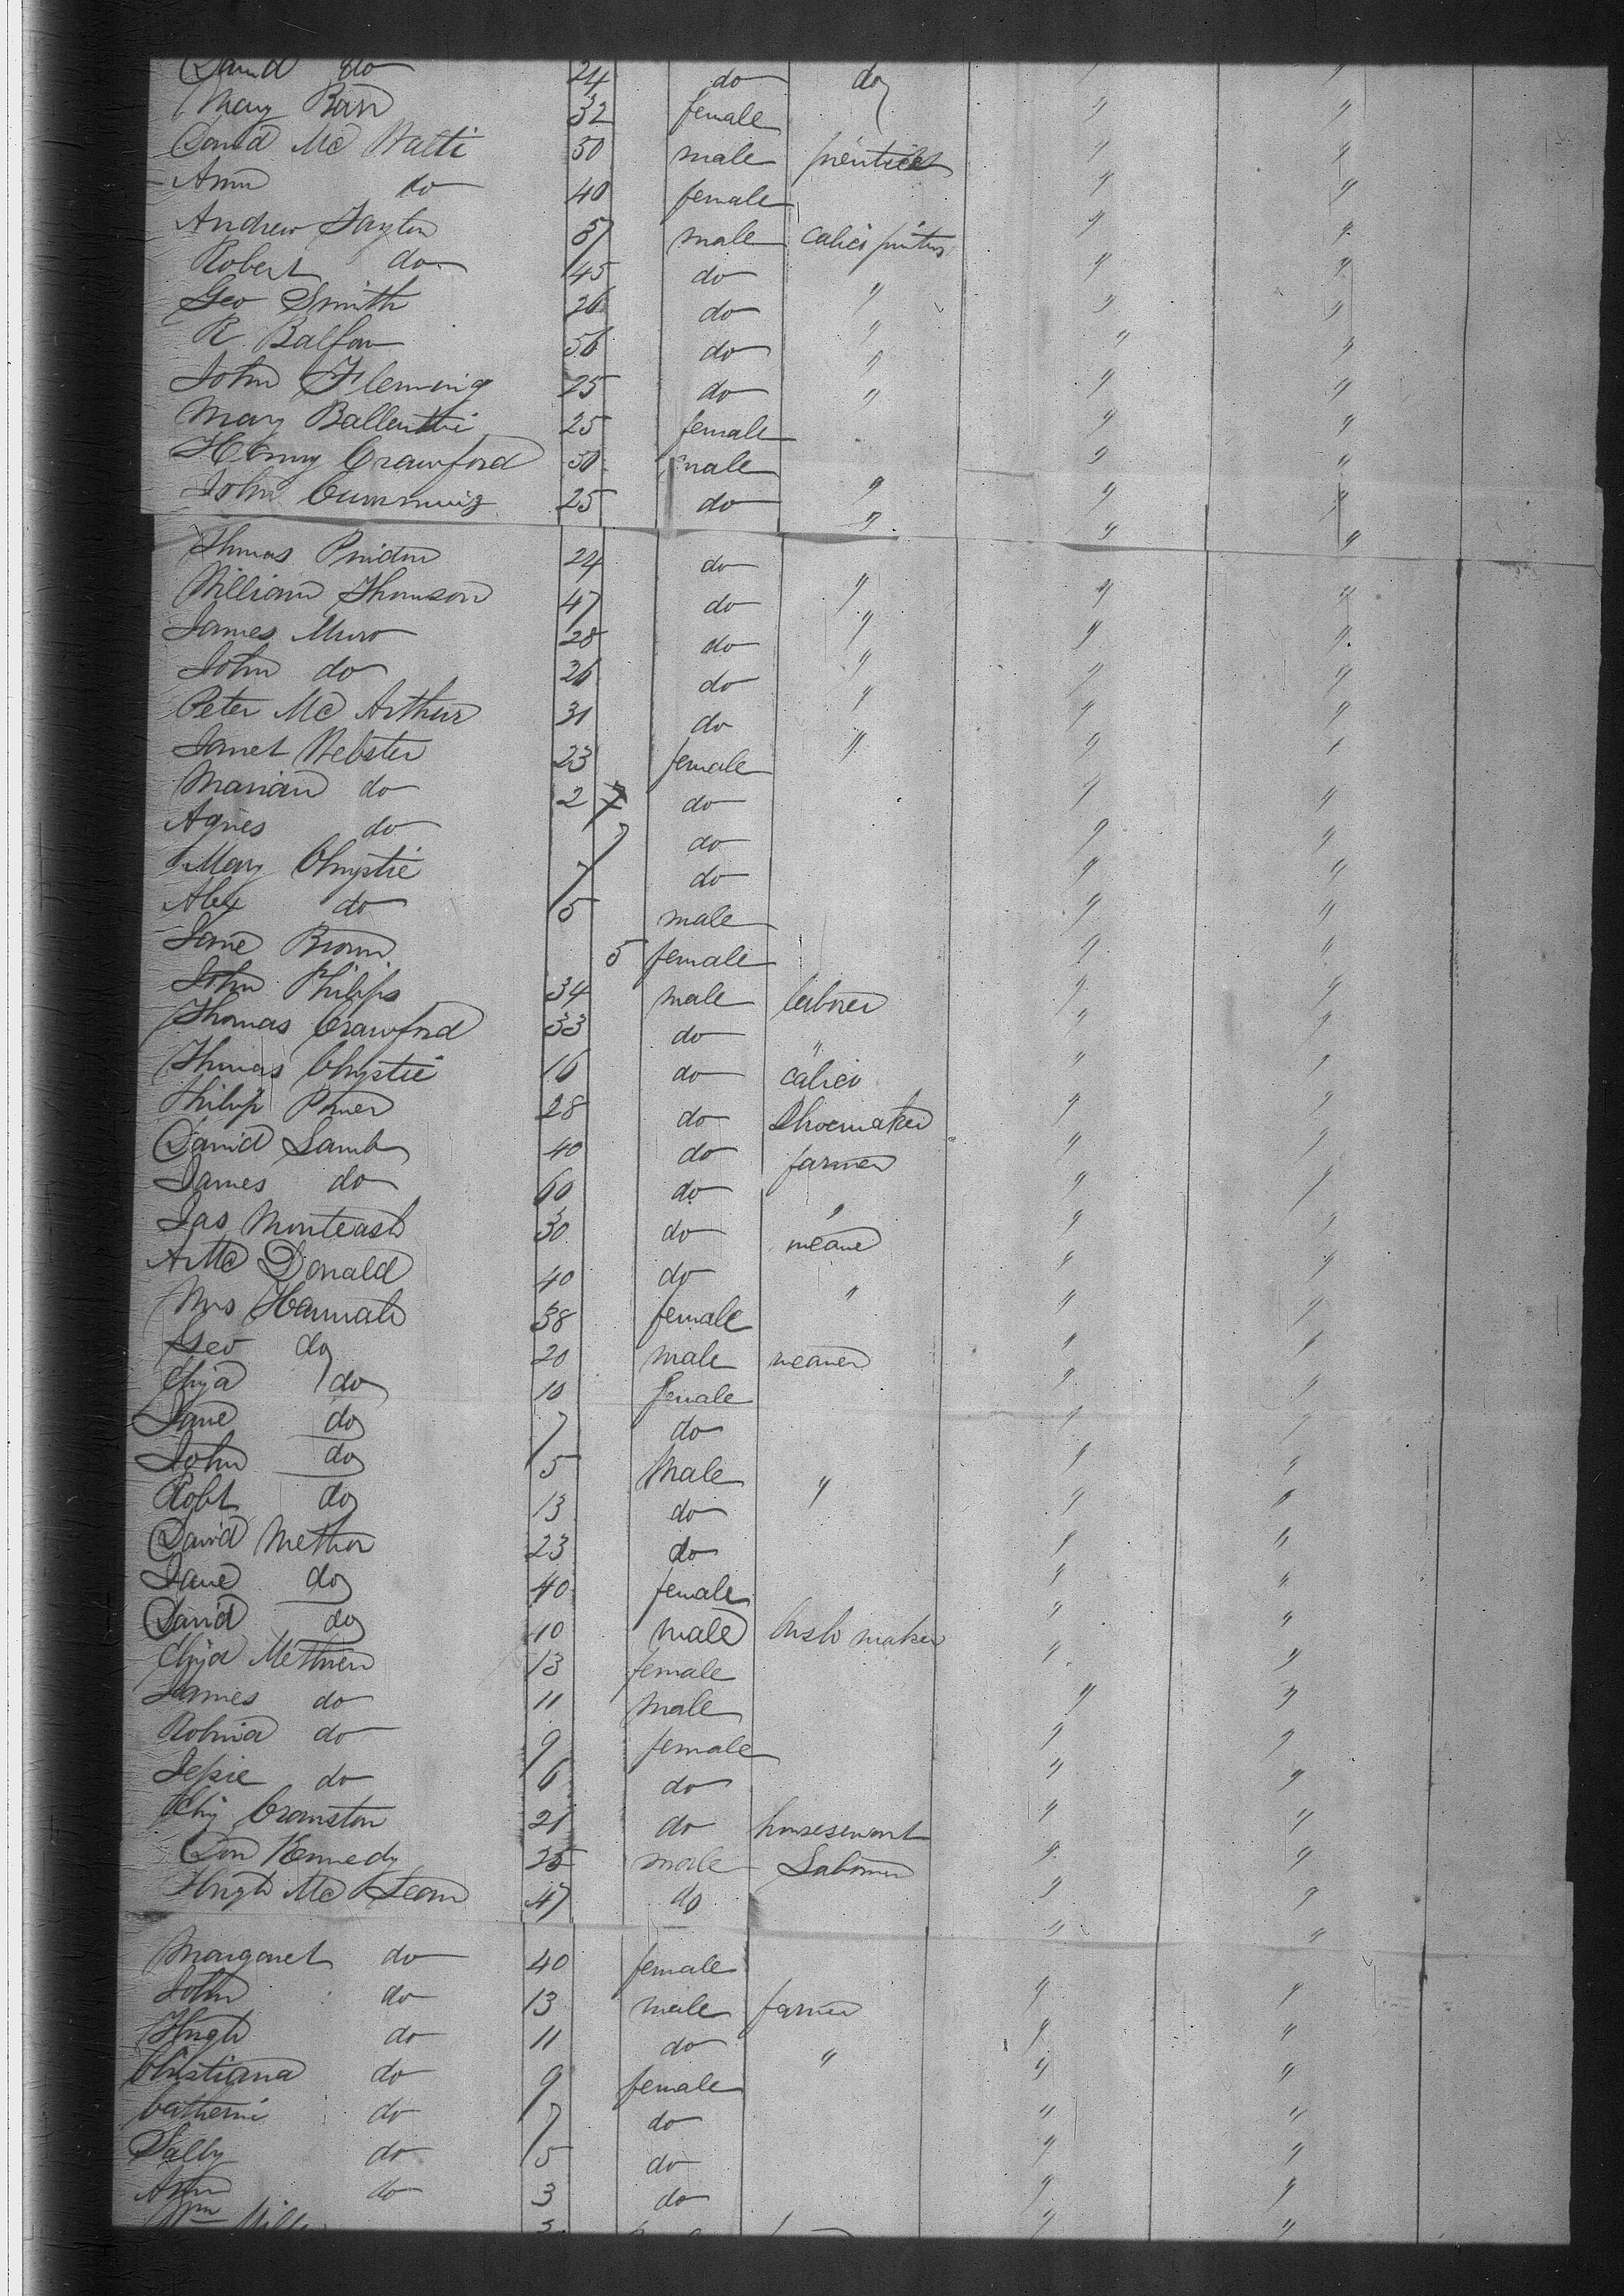 David do 24 do do " "
Mary Barr 32 female " "
David Mc Watti 50 male " "
Ann do 40 female " "
Andrew Taylor 57 male calico printers " "
Robert do 45 do " " "
Geo Smith 26 do " " "
R Balfour 56 do " " "
John Fleming 25 do " " "
Mary Ballentine 25 female " "
Henry Crawford 30 male " " "
John Cumming 25 do " " "
Thomas 24 do " " "
William Thomson 47 do " " "
James Muro 28 do " " "
John do 26 do " " "
Peter Mc Arthur 31 do " " "
Janet Webster 23 female " "
Marian do 2 7 do " "
Agnes do 7 do " "
Mary Chrystie 7 do " "
Alex do 5 male " "
Jane Brown 5 female " "
John Philips 34 male laborer " "
Thomas Crawford 33 do " " "
Thomas Chrystie 16 do calico " "
Philip Power 28 do Shoemaker " "
David Lamb 40 do farmer " "
James do 60 do " " "
Jas Monteath 30 do weaver " "
A Mc Donald 40 do " " "
Mrs Hannah 38 female " "
Geo do 20 male weaver " "
Eliza do 10 female " "
Jane do 7 do " "
John do 5 Male " "
Robt do 13 do " " "
David Methven 23 do " "
Jane do 40 female " "
David do 10 male brush maker " "
Eliza Methven 13 female " "
James do 11 male " "
Robina do 9 female " "
Jessie do 6 do " "
Eliz Cranston 21 do houseservant " "
Don Kennedy 25 male Laborer " "
Hugh Mc Lean 47 do " "
Margaret do 40 female
John do 13 male farmer " "
Hugh do 11 do " " "
Christiana do 9 female " "
Catherine do 7 do " "
Sally do 5 do " "
Ann do 3 do " "
Wm Mill " "